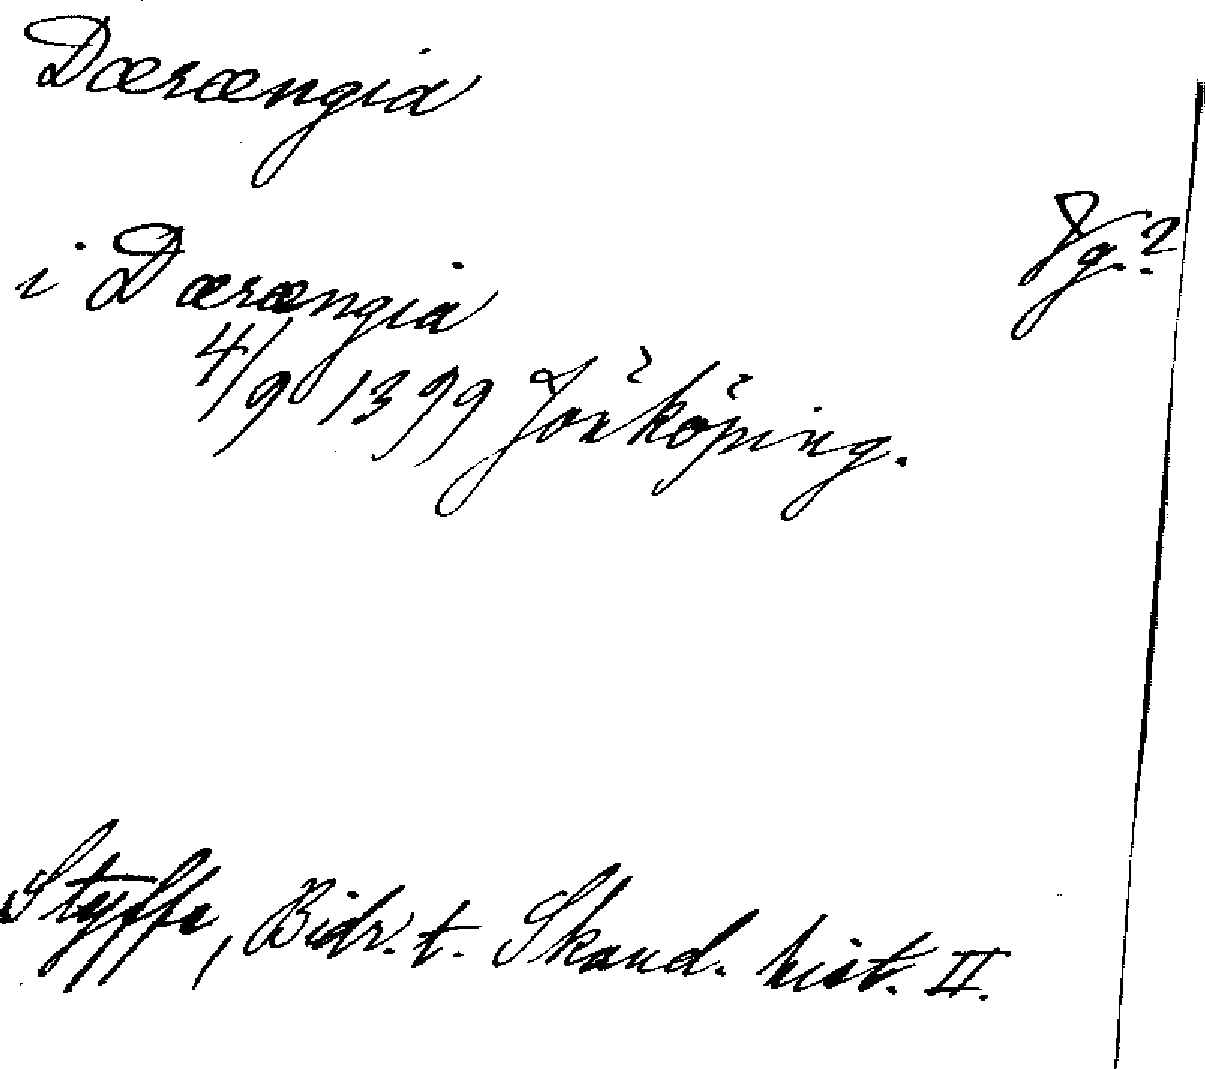 Dærængia
Vg.?
i Dærængia
4/9 1399 Jönköping.
Styffe, Bidr. t. Skand. hist. II.